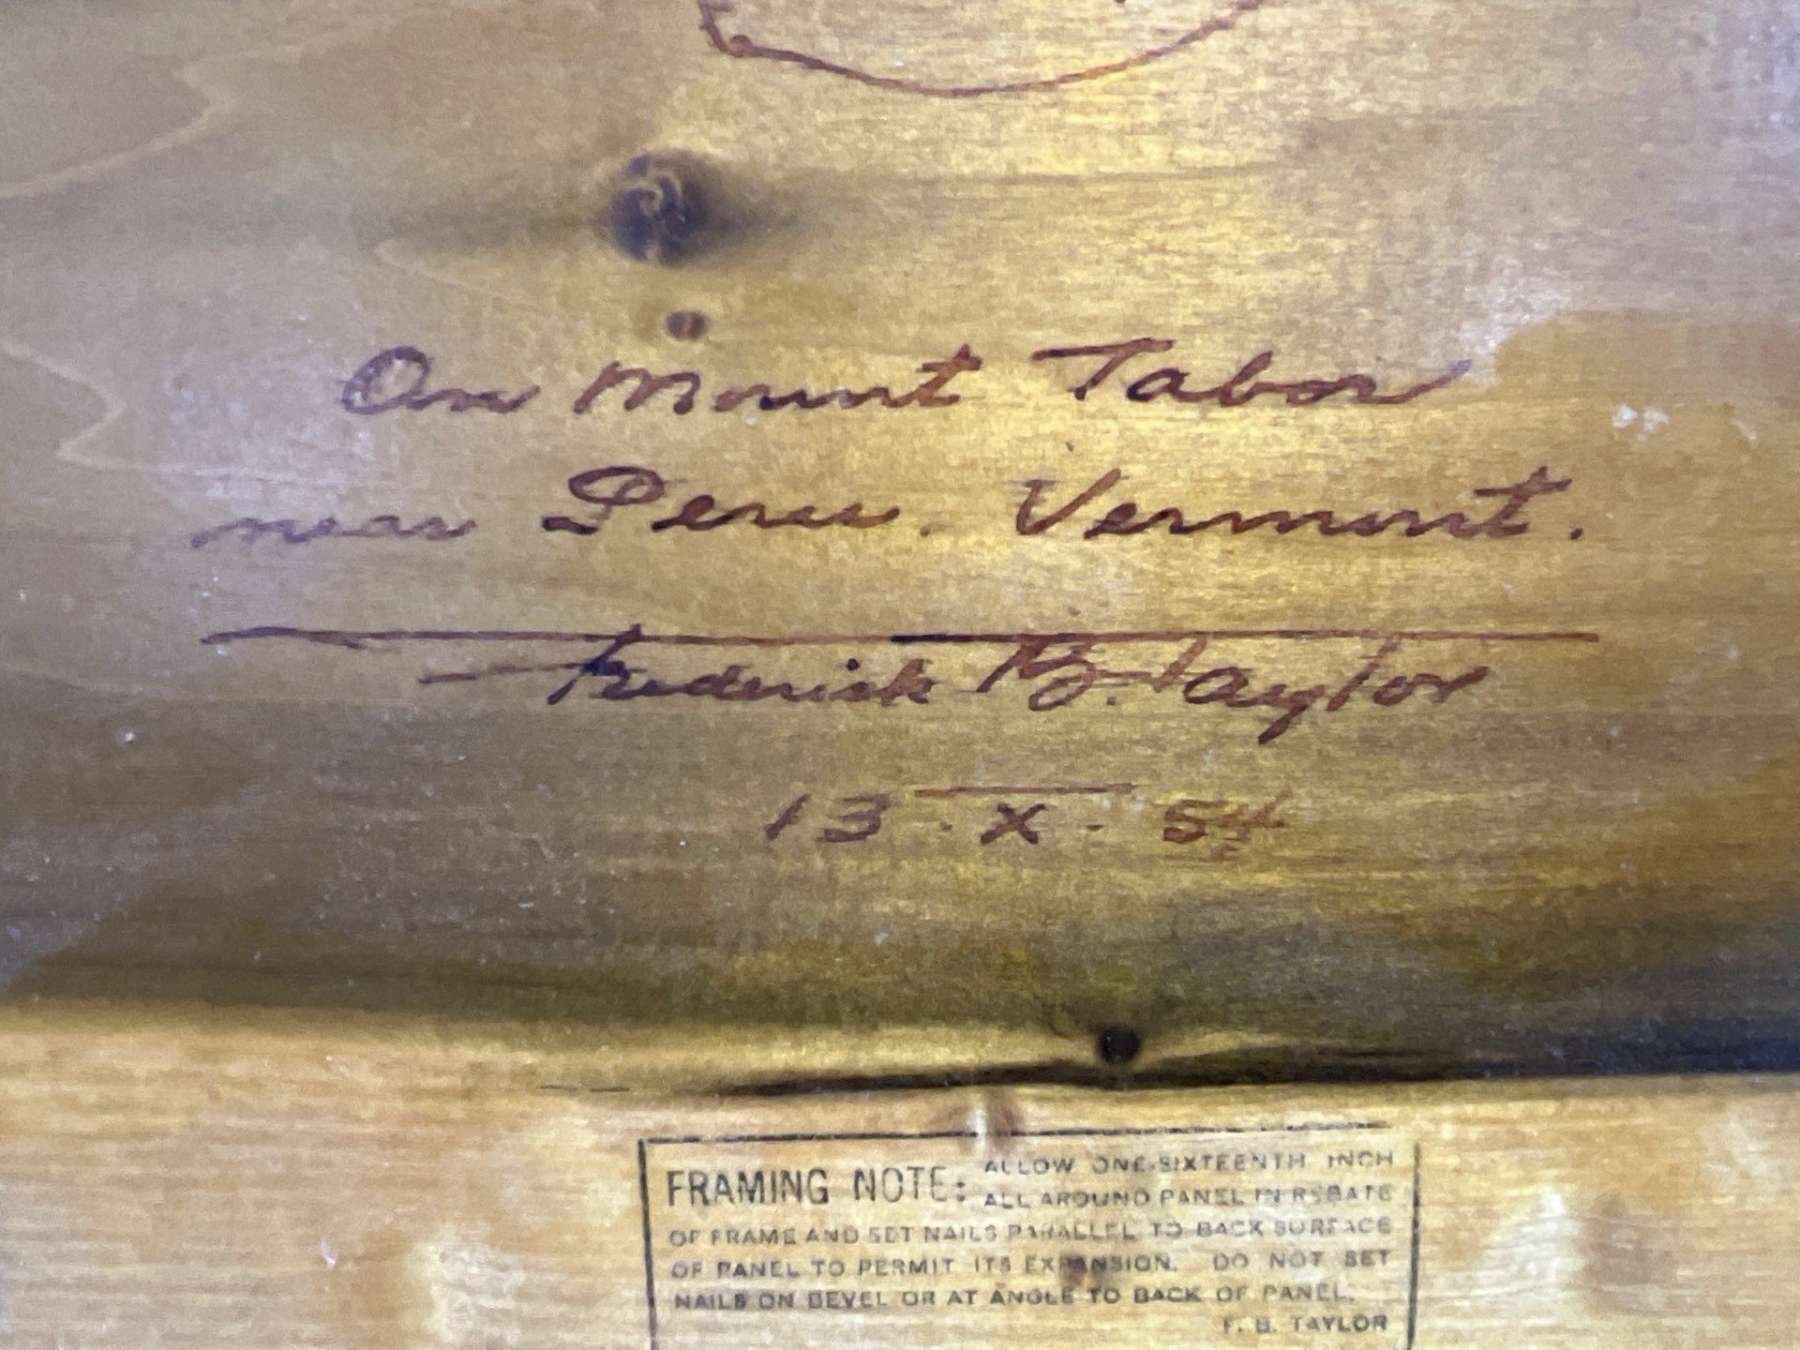 On Mount Tabor
near Peru. Vermont.
Frederick B. Taylor
13 · X · 54
FRAMING NOTE: ALLOW ONE-SIXTEENTH INCH
ALL AROUND PANEL IN REBATE
OF FRAME AND SET NAILS PARALLEL TO BACK SURFACE
OF PANEL TO PERMIT ITS EXPANSION. DO NOT SET
NAILS ON BEVEL OR AT ANGLE TO BACK OF PANEL.
F. B. TAYLOR